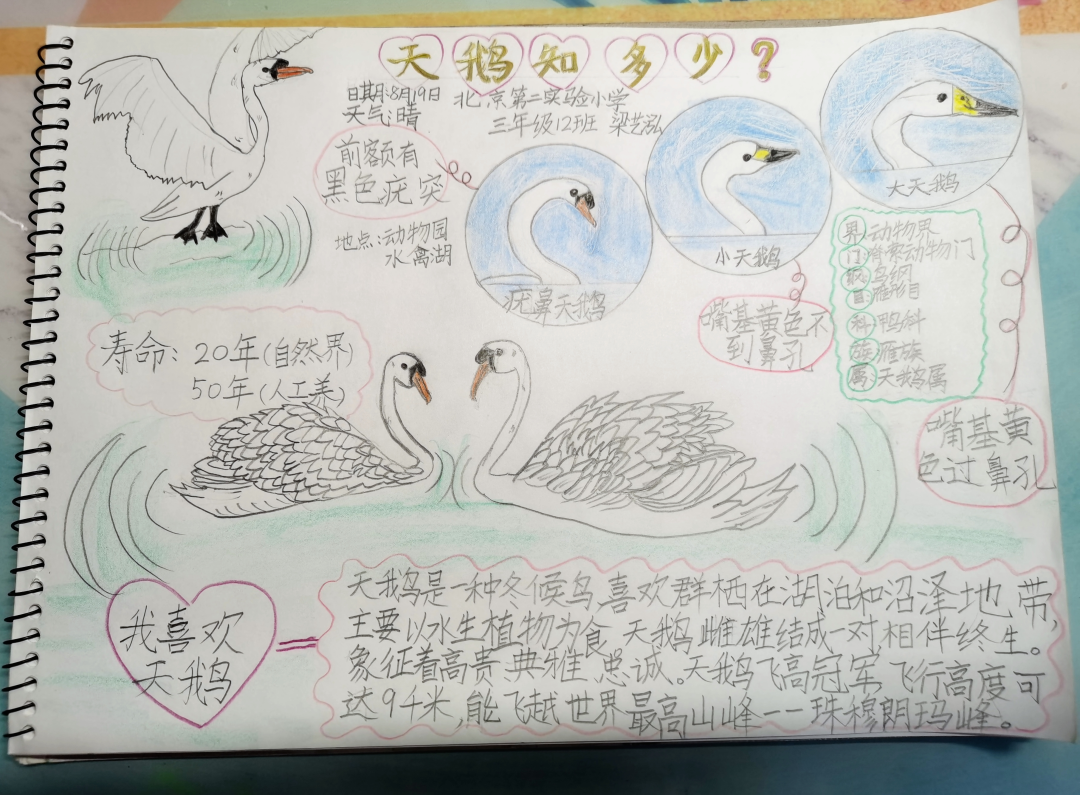 天鹅知多少?
日期:8月19日
天气:晴
北京第二实验小学
三年级12班 梁艺泓
前额有
黑色疣突
地点:动物园
水禽湖
疣鼻天鹅
小天鹅
大天鹅
嘴基黄色不
到鼻孔
界:动物界
门:脊索动物门
纲:鸟纲
目:雁形目
科:鸭科
族:雁族
属:天鹅属
嘴基黄
色过鼻孔
寿命:20年(自然界)
50年(人工养)
我喜欢
天鹅
天鹅是一种冬候鸟,喜欢群栖在湖泊和沼泽地带,
主要以水生植物为食。天鹅雌雄结成一对相伴终生。
象征着高贵、典雅、忠诚。天鹅飞高冠军,飞行高度可
达9千米,能飞越世界最高山峰——珠穆朗玛峰。